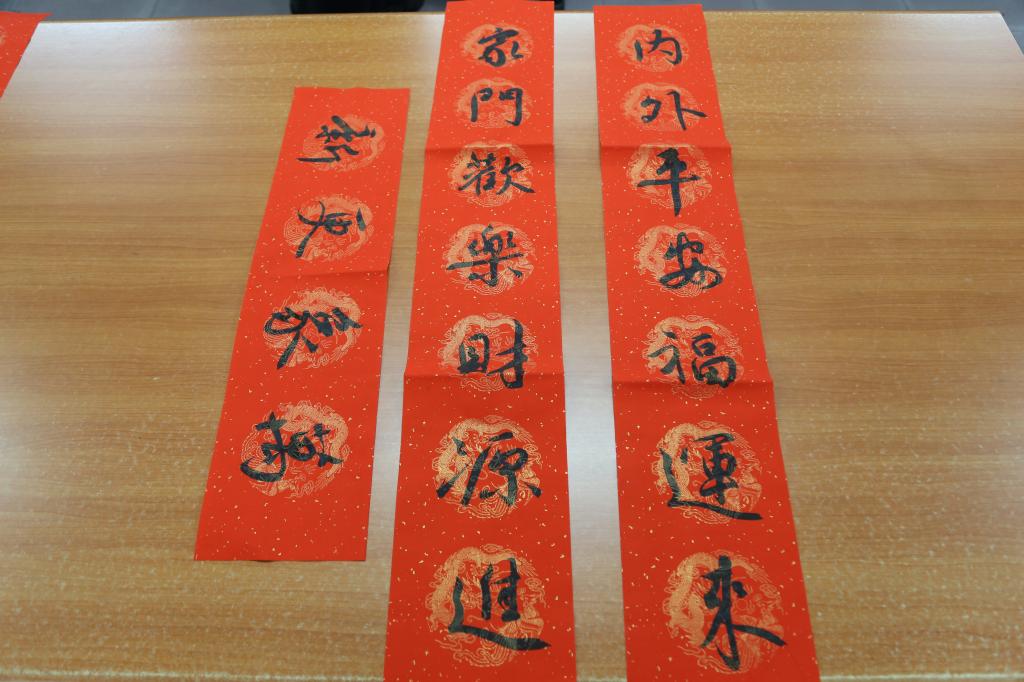 內外平安福運來
家門歡樂財源進
萬象更新